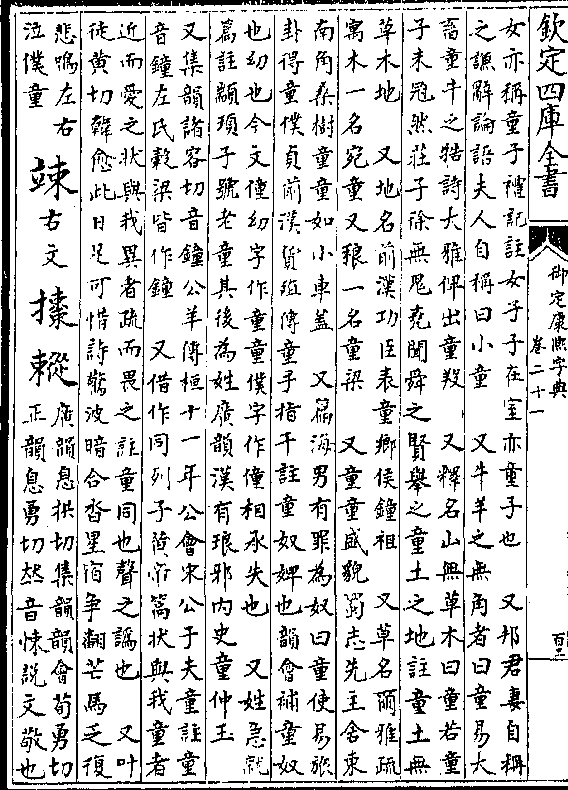 欽定四庫全書
御定康熙字典
卷二十一
女亦稱童子禮記註女子子在室亦童子也　又邦君妻自稱
之謙辭論語夫人自稱曰小童　又牛羊之無角者曰童易大
畜童牛之牿詩大雅俾出童羖　又釋名山無草木曰童若童
子未冠然莊子徐無鬼堯聞舜之賢舉之童土之地註童土無
草木地　又地名前漢功臣表童鄉侯鐘祖　又草名爾雅疏
寓木一名宛童又稂一名童梁　又童童盛貌蜀志先主舍東
南角桑樹童童如小車蓋　又篇海男有罪為奴曰童使易旅
卦得童僕貞前漢貨殖傳童手指千註童奴婢也韻會補童奴
也幼也今文僮幼字作童童僕字作僮相承失也　又姓急就
篇註顓頊子號老童其後為姓廣韻漢有琅邪內史童仲玉
又集韻諸容切音鐘公羊傳桓十一年公會宋公于夫童註童
音鐘左氏穀梁皆作鐘　又借作同列子黃帝篇狀與我童者
近而愛之狀與我異者疏而畏之註童同也聲之譌也　又叶
徒黄切韓愈此日足可惜詩驚波暗合沓星宿爭翻芒馬乏復
悲鳴左右
泣僕童
竦古文
廣韻息拱切集韻韻會荀勇切
正韻息勇切𠀤音悚說文敬也